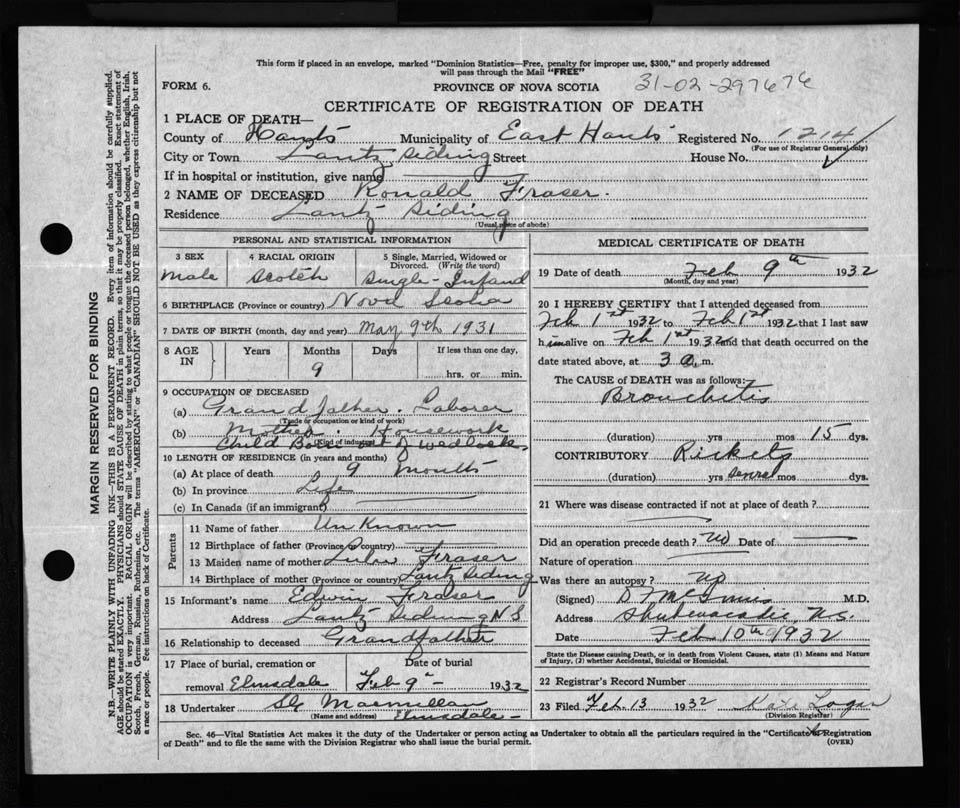 This form if placed in an envelope, marked "Dominion Statistics—Free, penalty for improper use, $300," and properly addressed
will pass through the Mail "FREE"
FORM 6.
PROVINCE OF NOVA SCOTIA
31-02-297676
CERTIFICATE OF REGISTRATION OF DEATH
1 PLACE OF DEATH—
County of Hants Municipality of East Hants Registered No. 1214
(For use of Registrar General only)
City or Town Lantz Siding Street House No.
If in hospital or institution, give name
2 NAME OF DECEASED Ronald Fraser.
Residence Lantz Siding
(Usual place of abode)
PERSONAL AND STATISTICAL INFORMATION
3 SEX 4 RACIAL ORIGIN 5 Single, Married, Widowed or Divorced. (Write the word)
Male Scotch Single-Infand
6 BIRTHPLACE (Province or country) Nova Scotia
7 DATE OF BIRTH (month, day and year) May 9th 1931
8 AGE IN Years Months Days If less than one day,
9 hrs. or min.
9 OCCUPATION OF DECEASED
(a) Grandfather. Laborer
(Trade or occupation or kind of work)
(b) Mother. Housework
(Kind of industry)
Child Born of wedlock
10 LENGTH OF RESIDENCE (in years and months)
(a) At place of death 9 months
(b) In province Life
(c) In Canada (if an immigrant)
Parents
11 Name of father Un Known
12 Birthplace of father (Province or country)
13 Maiden name of mother Fraser
14 Birthplace of mother (Province or country) Lantz Siding
15 Informant's name Edwin Fraser
Address Lantz Siding NS
16 Relationship to deceased Grandfather
17 Place of burial, cremation or Date of burial
removal Elmsdale Feb 9th 1932
18 Undertaker Macmillan
(Name and address) Elmsdale
MEDICAL CERTIFICATE OF DEATH
19 Date of death Feb 9th 1932
(Month, day and year)
20 I HEREBY CERTIFY that I attended deceased from
Feb 1st 1932 to Feb 1st 1932 that I last saw
him alive on Feb 1st 1932 and that death occurred on the
date stated above, at 3 a.m.
The CAUSE OF DEATH was as follows:
Bronchitis
(duration) yrs mos 15 dys.
CONTRIBUTORY Rickets
(duration) yrs several mos dys.
21 Where was disease contracted if not at place of death?
Did an operation precede death? No Date of
Nature of operation
Was there an autopsy? No
(Signed) D McInnis M.D.
Address Shubenacadie, N.S.
Date Feb 10th 1932
State the Disease causing Death, or in death from Violent Causes, state (1) Means and Nature
of Injury, (2) whether Accidental, Suicidal or Homicidal.
22 Registrar's Record Number
23 Filed Feb. 13 1932 Logan
(Division Registrar)
Sec. 46—Vital Statistics Act makes it the duty of the Undertaker or person acting as Undertaker to obtain all the particulars required in the "Certificate of Registration
of Death" and to file the same with the Division Registrar who shall issue the burial permit.
(OVER)
MARGIN RESERVED FOR BINDING
N.B.—WRITE PLAINLY WITH UNFADING INK—THIS IS A PERMANENT RECORD. Every item of information should be carefully supplied.
AGE should be stated EXACTLY. PHYSICIANS should STATE CAUSE OF DEATH in plain terms, so that it may be properly classified. Exact statement of
OCCUPATION is very important. RACIAL ORIGIN will be described by stating to what people or tongue the deceased person belonged, whether English, Irish,
Scotch, French, German, Russian, Ruthenian, etc. The terms "AMERICAN" or "CANADIAN" SHOULD NOT BE USED as they express citizenship but not
a race or people. Fee instructions on back of Certificate.